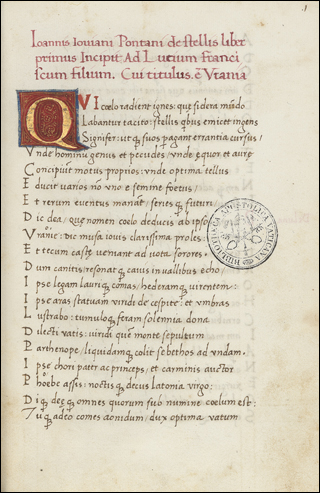 Ioannis Ioviani Pontani de stellis liber
primus Incipit Ad Lucium Franci
scum filium. Cui titulus. ē Urania
QVI coelo radient ignes: quę sidera mundo
Labantur tacito: stellis qbus emicet ingens
Signifer: utq suos pagant errantia cursus,
Vnde hominū genus et pecudes, unde ęquor et aurę
Concipiunt motus proprios: unde optima tellus
Educit varios nō uno e semine foetus,
Et rerum eventus manāt, series q futuri
Dic dea, quę nomen coelo deducis ab ipso
Uranie: dic musa iovis clarissima proles:
Et tecum castę veniant ad vota sorores.
Dum canitis, resonat q cavis invallibus echo,
Ipse legam lauriq comas, hederamq virentem:
Ipse aras statuam viridi de cespite: et umbras
Lustrabo: tumuloq feram solennia dona
Dilecti vatis: viridi quē monte sepultum
Parthenope, liquidamq colit sebethos ad undam.
Ipse chori pater ac princeps, et carminis auctor
Phoebe assis: noctis q decus latonia virgo:
Diq deęq omnes quorum sub numine coelum est:
Tuq adeo comes aonidum, dux optima vatum
BIBLIOTECA APOSTOLICA VATICANA